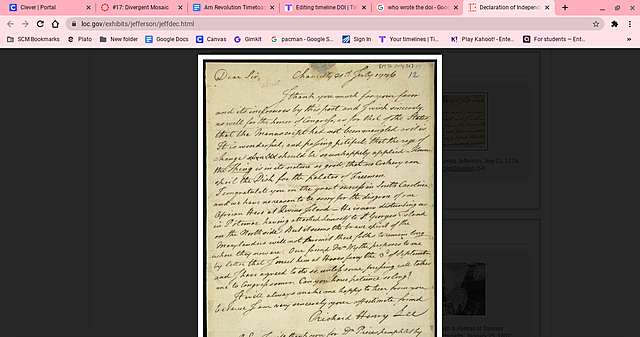 Clever | Portal
#17: Divergent Mosaic
Am Revolution Timetoa
Editing timeline DOI | Tim
who wrote the doi - Goog
Declaration of Independ
loc.gov/exhibits/jefferson/jeffdec.html
SCM Bookmarks
Plato
New folder
Google Docs
Canvas
Gimkit
pacman - Google S...
Sign In
Your timelines | Ti...
Play Kahoot! - Ente...
For students — Ent...
Dear Sir, Chantilly 21st July 1776 12
I thank you much for your favor
and its inclosures by this post, and I wish sincerely,
as well for the honor of Congress, as for that of the States,
that the Manuscript had not been mangled as it is.
It is wonderful, and passing pitiful, that the rage of
change should be so unhappily applied. However
the Thing is in its nature so good, that no Cookery can
spoil the Dish for the palates of Freemen.
I congratulate you on the great success in South Carolina
and we have no reason to be sorry for the disgrace of our
African Hero at
in Potomac, having attached himself to St Georges Island
on the North side. But it seems the brave spirit of the
Marylanders will not permit these folks to remain long
where they now are. Our friend Mr Wythe proposes to me
by letter that I meet him at Hooes ferry the 3d of September
and I have agreed to do so, unless some pressing call takes
me to Congress sooner. Can you have patience so long?
It will always make me happy to hear from you
because I am very sincerely your affectionate friend
Richard Henry Lee
thank you for Dr Prices pamphlet by
omas Jefferson, July 21, 1776
(54)
with a Portrait of Thomas